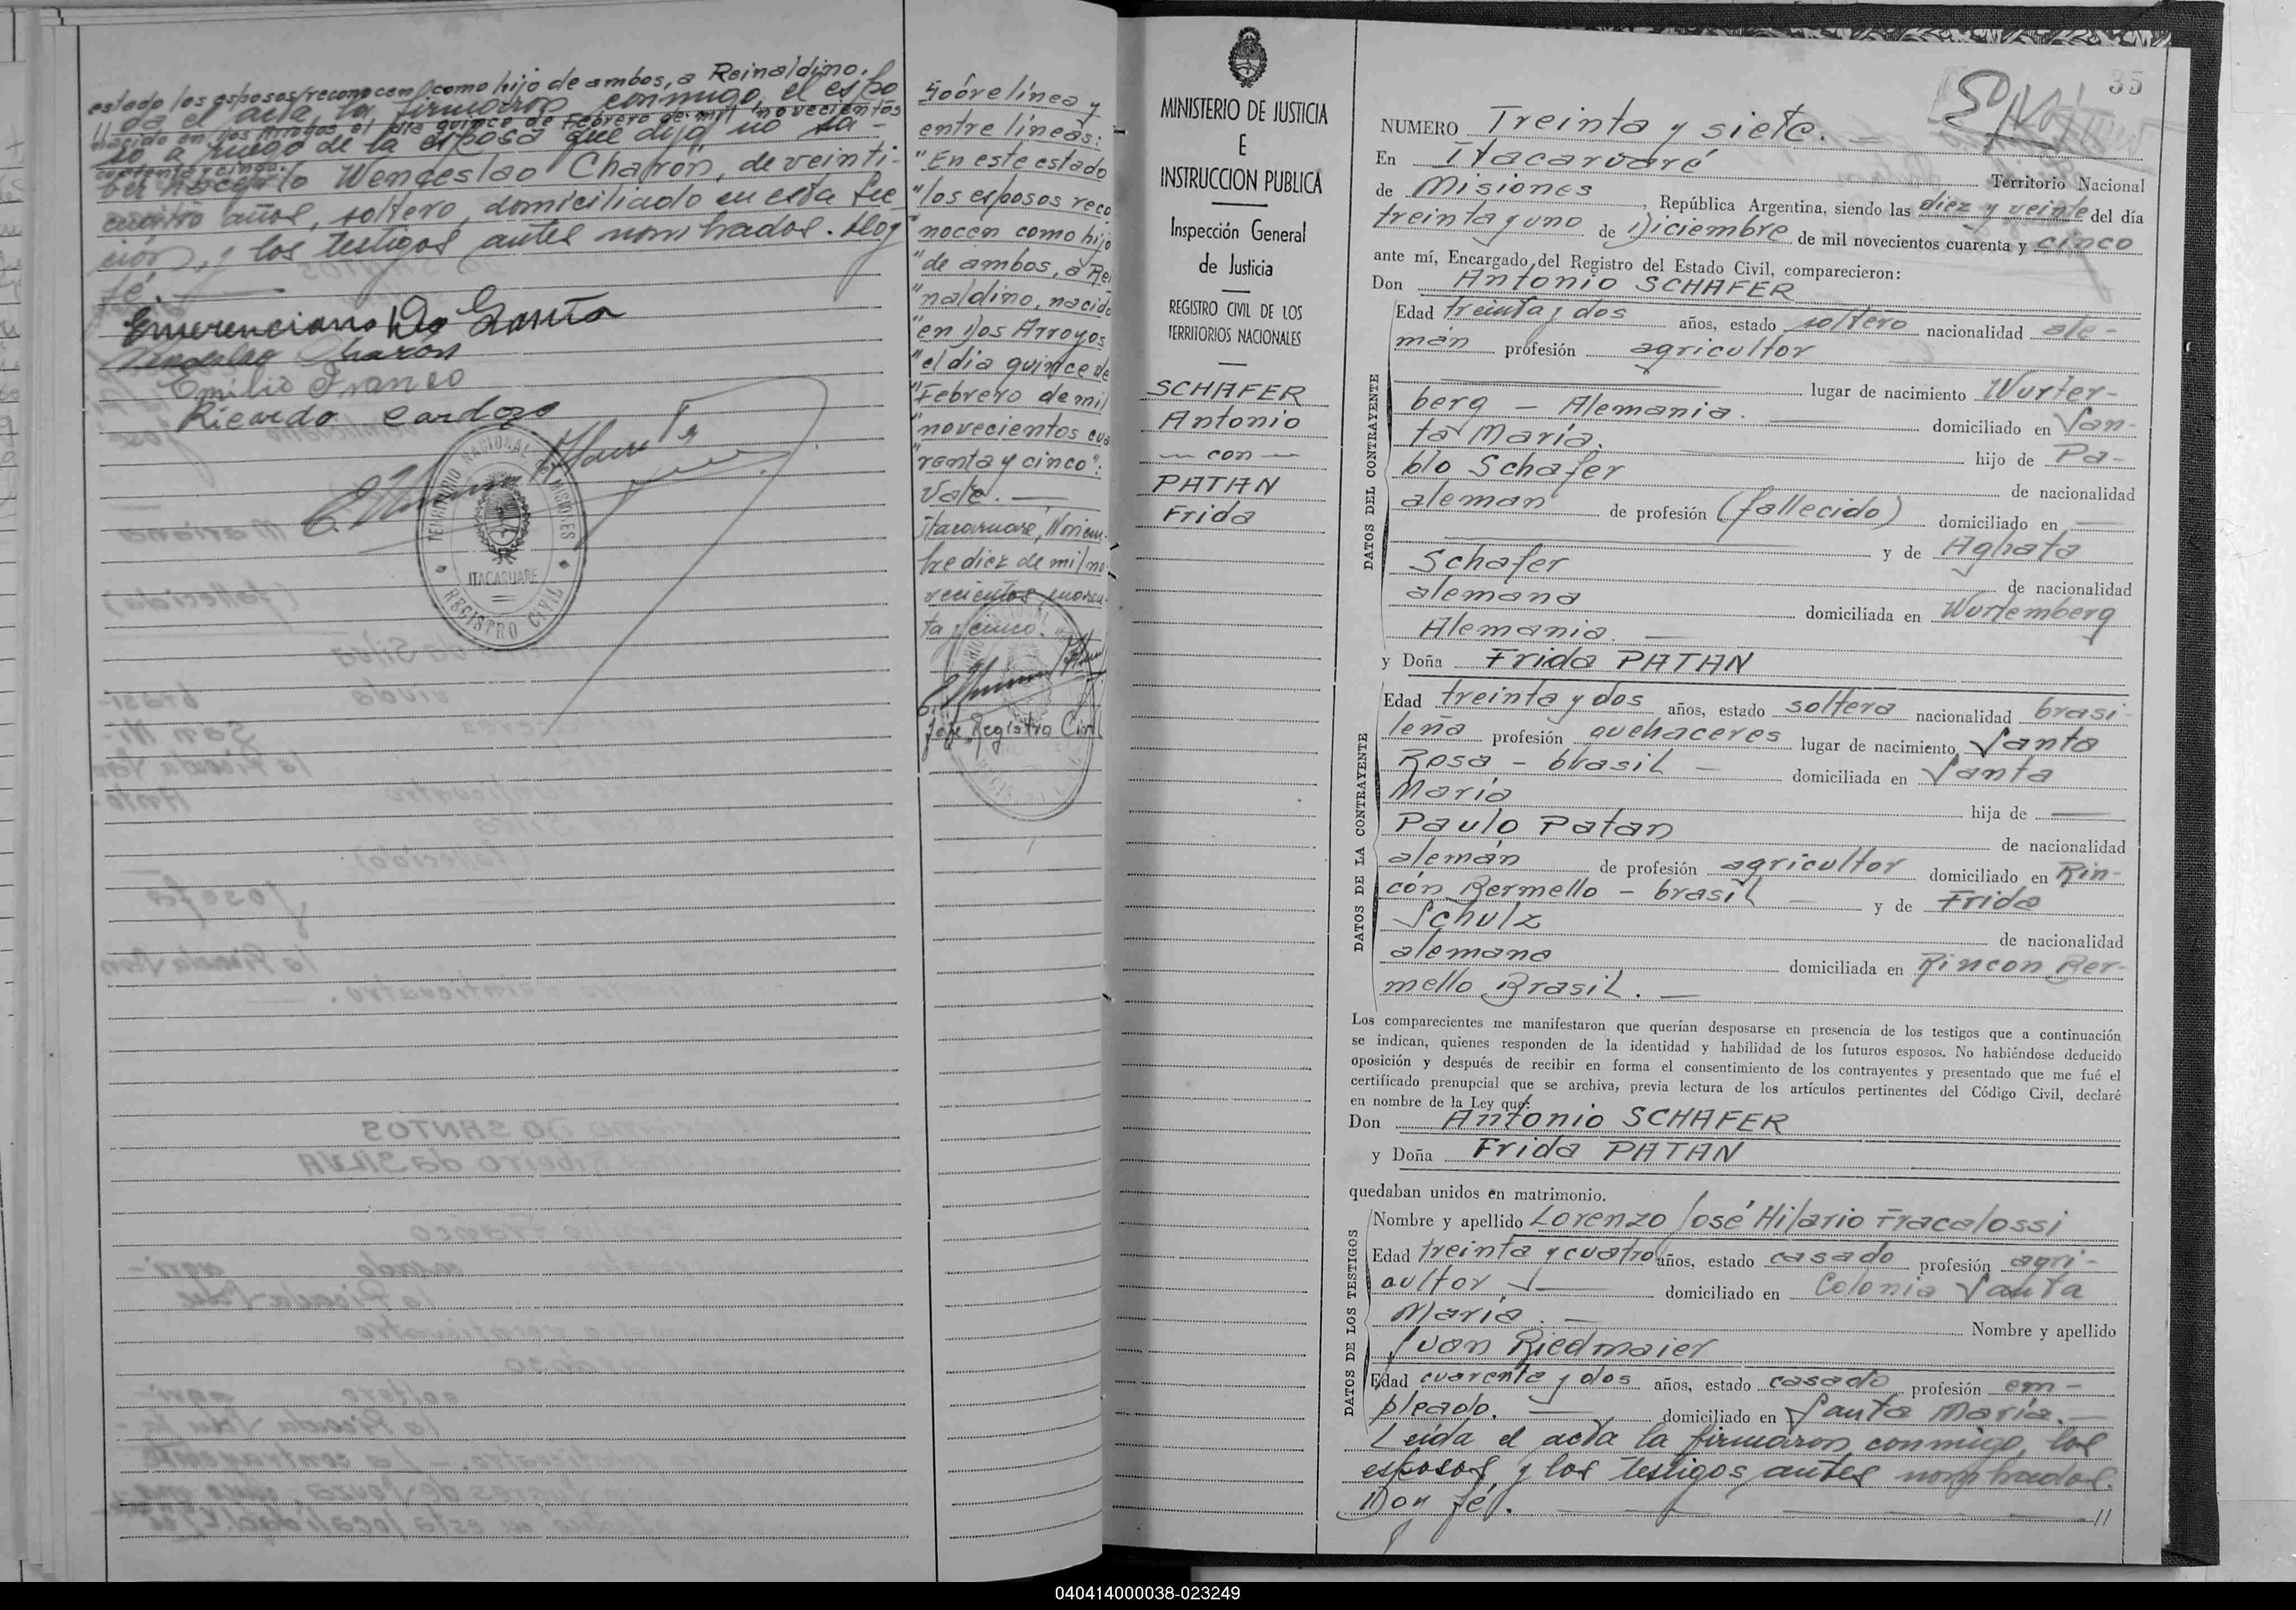 estado los esposos reconocen como hijo de ambos, a Reinaldino,
// da el acta la firmaron conmigo, el espo
nacido en Dos Arroyos el día quince de Febrero de mil novecientos
so a ruego de la esposa que dijo no sa-
cuarenta y cinco.
ber hacerlo Wenceslao Charon, de veinti-
cuatro años, soltero, domiciliado en esta sec
ción, y los testigos antes nombrados. Doy
fé.
Emerenciano Do Santo
Wenceslao Charon
Emilio Franco
Ricardo Cardozo
TERRITORIO NACIONAL MISIONES
ITACARUARE
REGISTRO CIVIL
Sobre línea y
entre líneas:
"En este estado
"los esposos reco
"nocen como hijo
"de ambos, a Rei
"naldino, nacido
"en Dos Arroyos
"el día quince de
"Febrero de mil
"novecientos cua
"renta y cinco":
Vale. —
Itacaruare, Noviem-
bre diez de mil no-
vecientos cuaren-
ta y cinco.
Jefe Registro Civil
MINISTERIO DE JUSTICIA
E
INSTRUCCION PUBLICA
Inspección General
de Justicia
REGISTRO CIVIL DE LOS
TERRITORIOS NACIONALES
SCHAFER
Antonio
— con —
PATAN
Frida
35
NUMERO Treinta y siete.
En Itacaruaré Territorio Nacional
de Misiones, República Argentina, siendo las diez y veinte del día
treinta y uno de Diciembre de mil novecientos cuarenta y cinco
ante mí, Encargado del Registro del Estado Civil, comparecieron:
Don Antonio SCHAFER
DATOS DEL CONTRAYENTE
Edad treinta y dos años, estado soltero nacionalidad ale-
mán profesión agricultor
lugar de nacimiento Wurter-
berg — Alemania. domiciliado en San-
ta María. hijo de Pa-
blo Schafer de nacionalidad
aleman de profesión (fallecido) domiciliado en —
y de Aghata
Schafer de nacionalidad
alemana domiciliada en Wurtemberg
Alemania. —
y Doña Frida PATAN
DATOS DE LA CONTRAYENTE
Edad treinta y dos años, estado soltera nacionalidad brasi-
leña profesión quehaceres lugar de nacimiento Santa
Rosa - brasil — domiciliada en Santa
María hija de —
Paulo Patan de nacionalidad
alemán de profesión agricultor domiciliado en Rin-
cón Bermello - brasil — y de Frida
Schulz de nacionalidad
alemana domiciliada en Rincon Ber-
mello Brasil. —
Los comparecientes me manifestaron que querían desposarse en presencia de los testigos que a continuación
se indican, quienes responden de la identidad y habilidad de los futuros esposos. No habiéndose deducido
oposición y después de recibir en forma el consentimiento de los contrayentes y presentado que me fué el
certificado prenupcial que se archiva, previa lectura de los artículos pertinentes del Código Civil, declaré
en nombre de la Ley que:
Don Antonio SCHAFER
y Doña Frida PATAN
quedaban unidos en matrimonio.
DATOS DE LOS TESTIGOS
Nombre y apellido Lorenzo José Hilario Fracalossi
Edad treinta y cuatro años, estado casado profesión agri-
cultor. — domiciliado en Colonia Santa
María. — Nombre y apellido
Juan Riedmaier
Edad cuarenta y dos años, estado casado profesión em-
pleado. — domiciliado en Santa María. —
Leída el acta la firmaron conmigo, los
esposos y los testigos antes nombrados.
Doy fé. — — — //
040414000038-023249